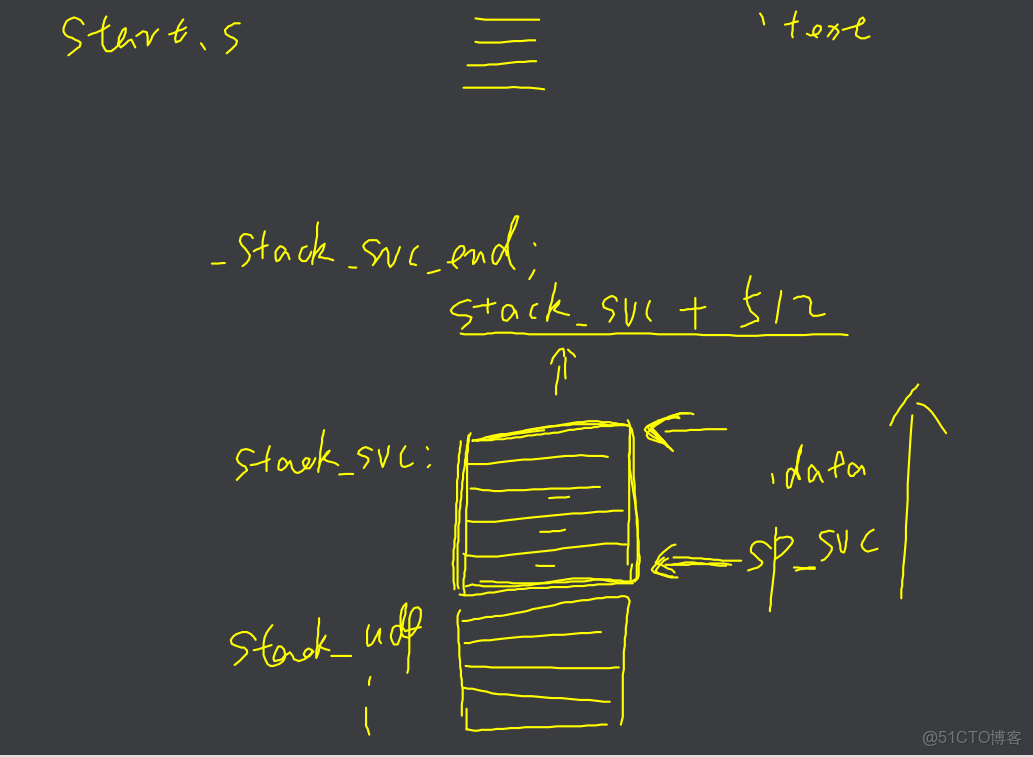 start.s
.text
_stack_svc_end:
stack_svc + 512
stack_svc:
.data
sp_svc
stack_udf
@51CTO博客